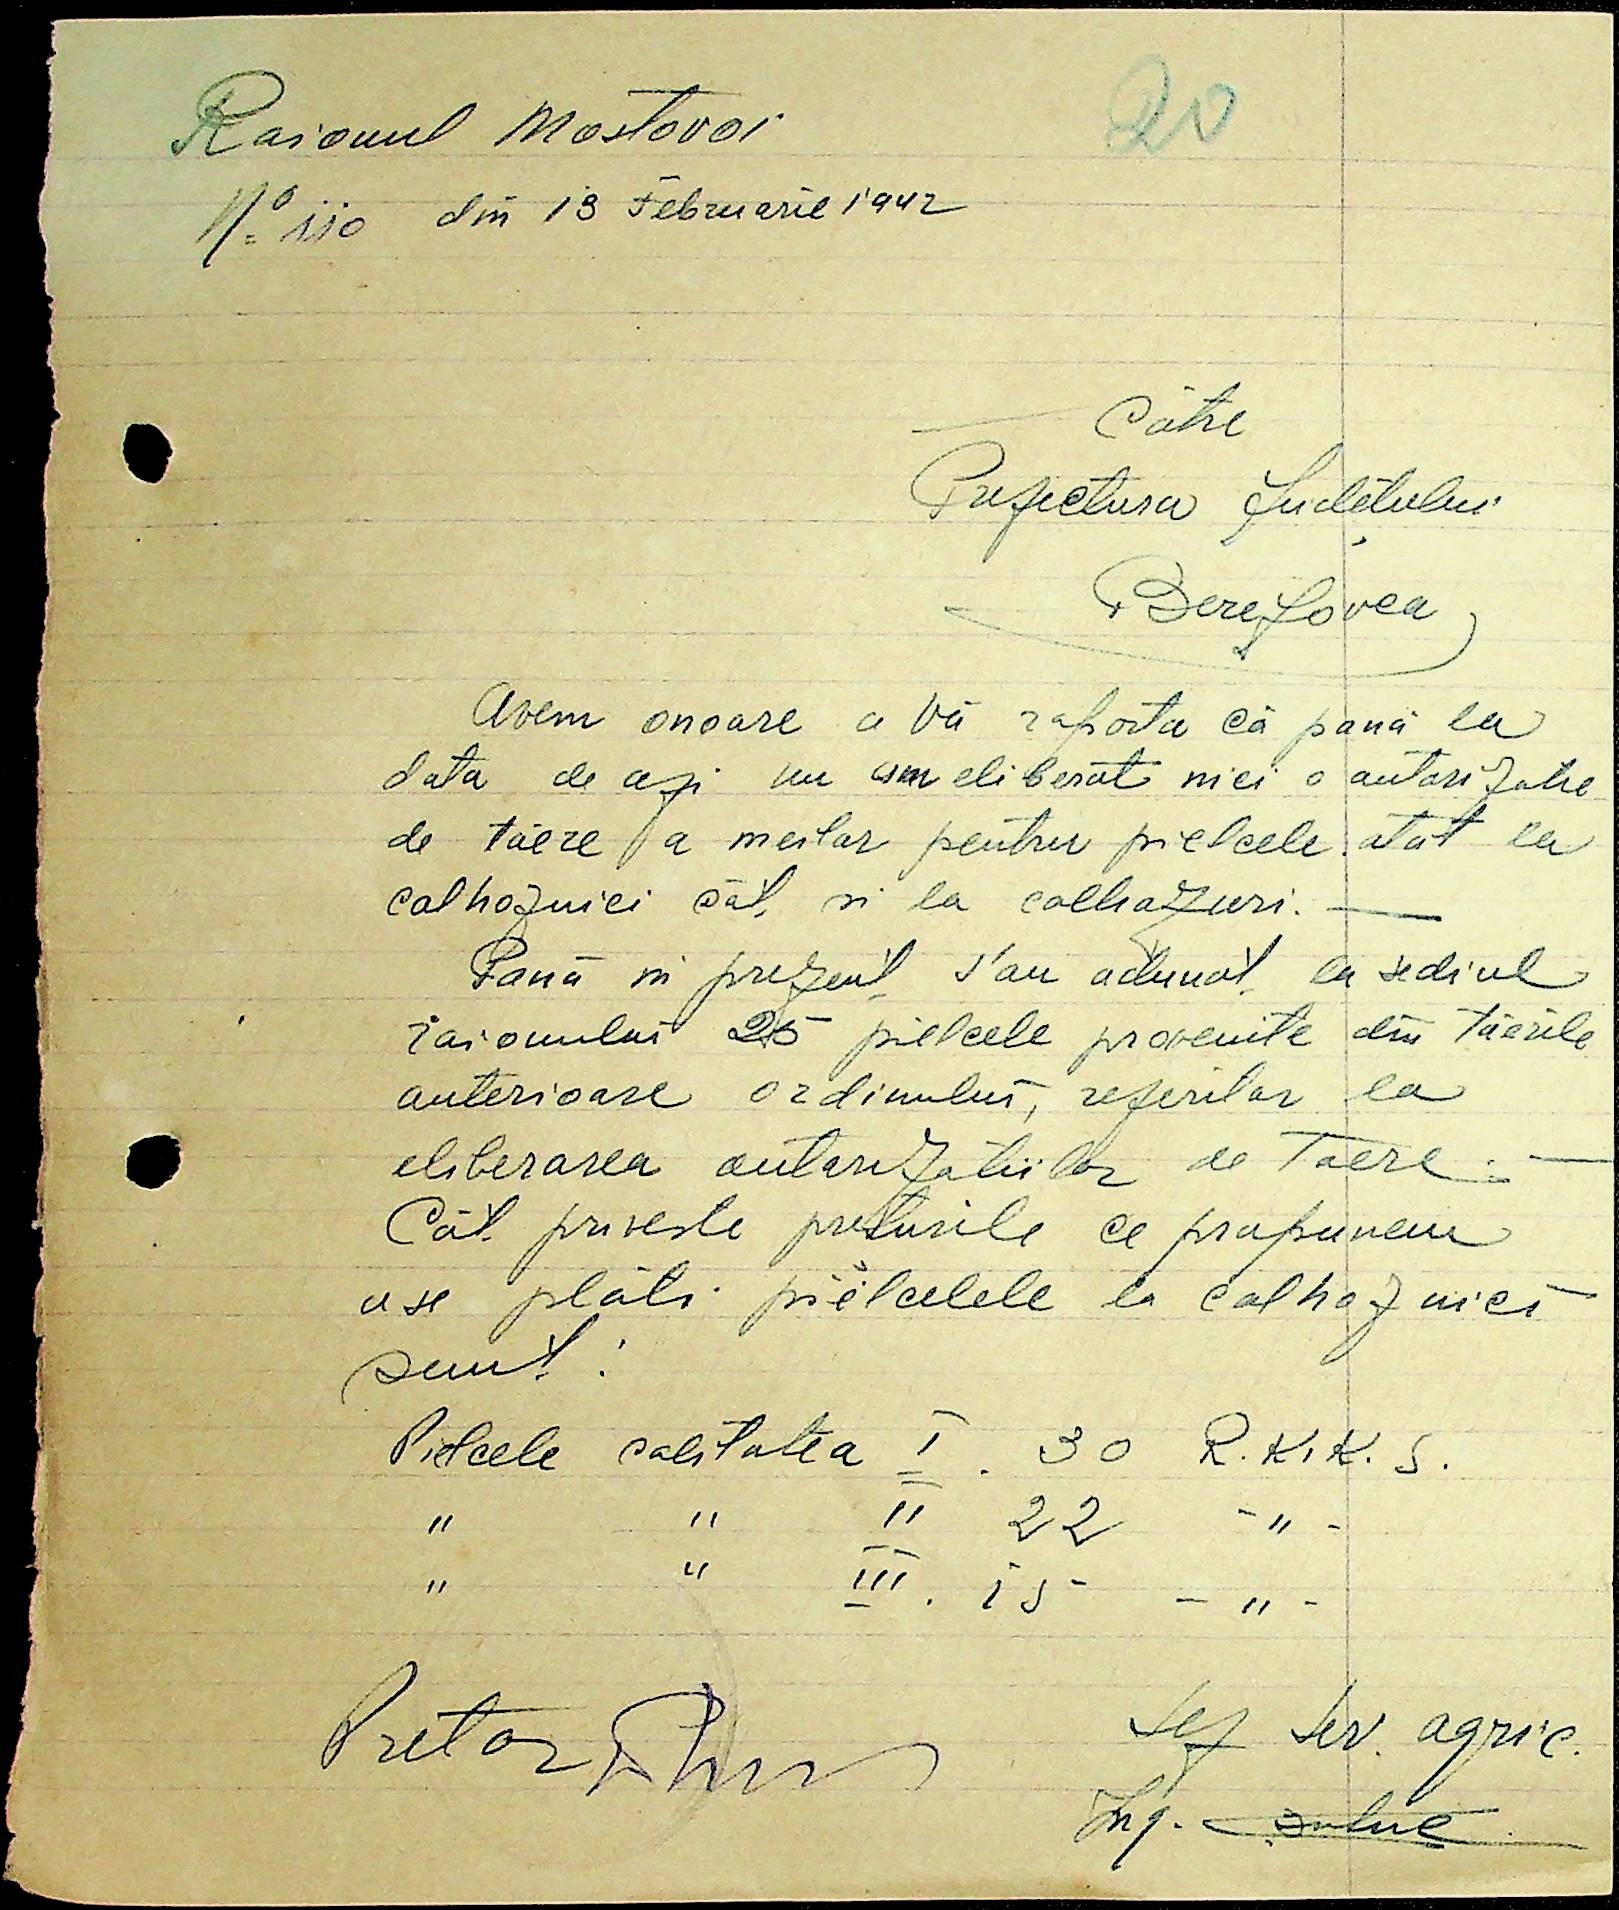 20
Raionul Mostovoi
No 110 din 13 Februarie 1942
Către
Prefectura Județului
Berezovca
Avem onoare a Vă raporta că pană la
data de azi nu am eliberat nici o autorizatie
de tăere a meilor pentru pielcele atât la
colhoznici cât si la colhozuri. —
Pană in prezent s'au adunat la sediul
raionului 25 pielcele provenite din tăerile
anterioare ordinului, referitor la
eliberarea autorizatiilor de Taere. —
Cât priveste preturile ce propunem
a se plăti pielcelele la colhoznici
sunt:
Pielcele calitatea I. 30 R.K.K.S.
" " II 22 - " -
" " III. 15 - " -
Pretor
Sef Serv. agric.
Ing.